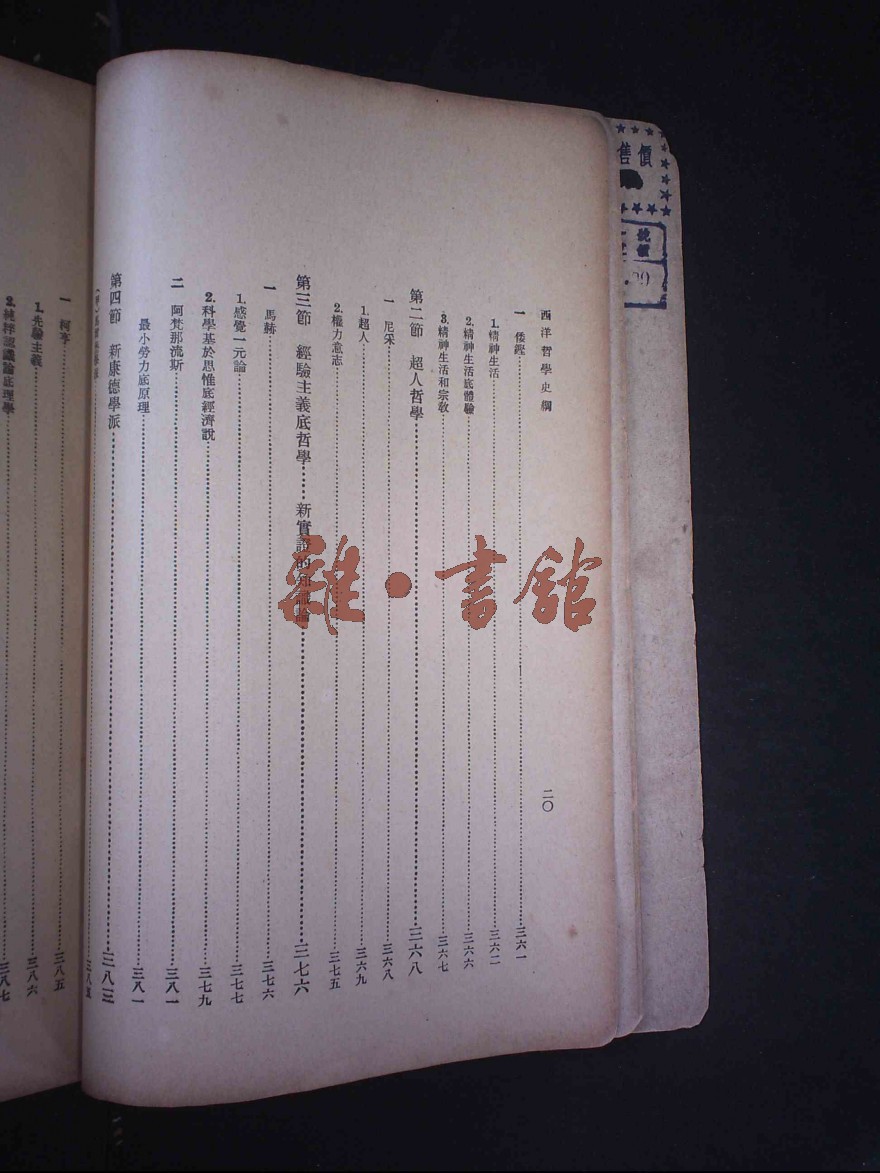 西洋哲學史綱
二〇
一 倭鏗……三六一
1.精神生活……三六二
2.精神生活底體驗……三六六
3.精神生活和宗敎……三六七
第二節 超人哲學……三六八
一 尼采……三六八
1.超人……三六九
2.權力意志……三七五
第三節 經驗主義底哲學……新實證的知識論……三七六
一 馬赫……三七六
1.感覺一元論……三七七
2.科學基於思惟底經濟說……三七九
二 阿梵那流斯……三八一
最小勞力底原理……三八一
第四節 新康德學派……三八三
一 柯亨……三八五
1.先驗主義……三八六
2.純粹認識論底理學……三八七
雜·書館
售價